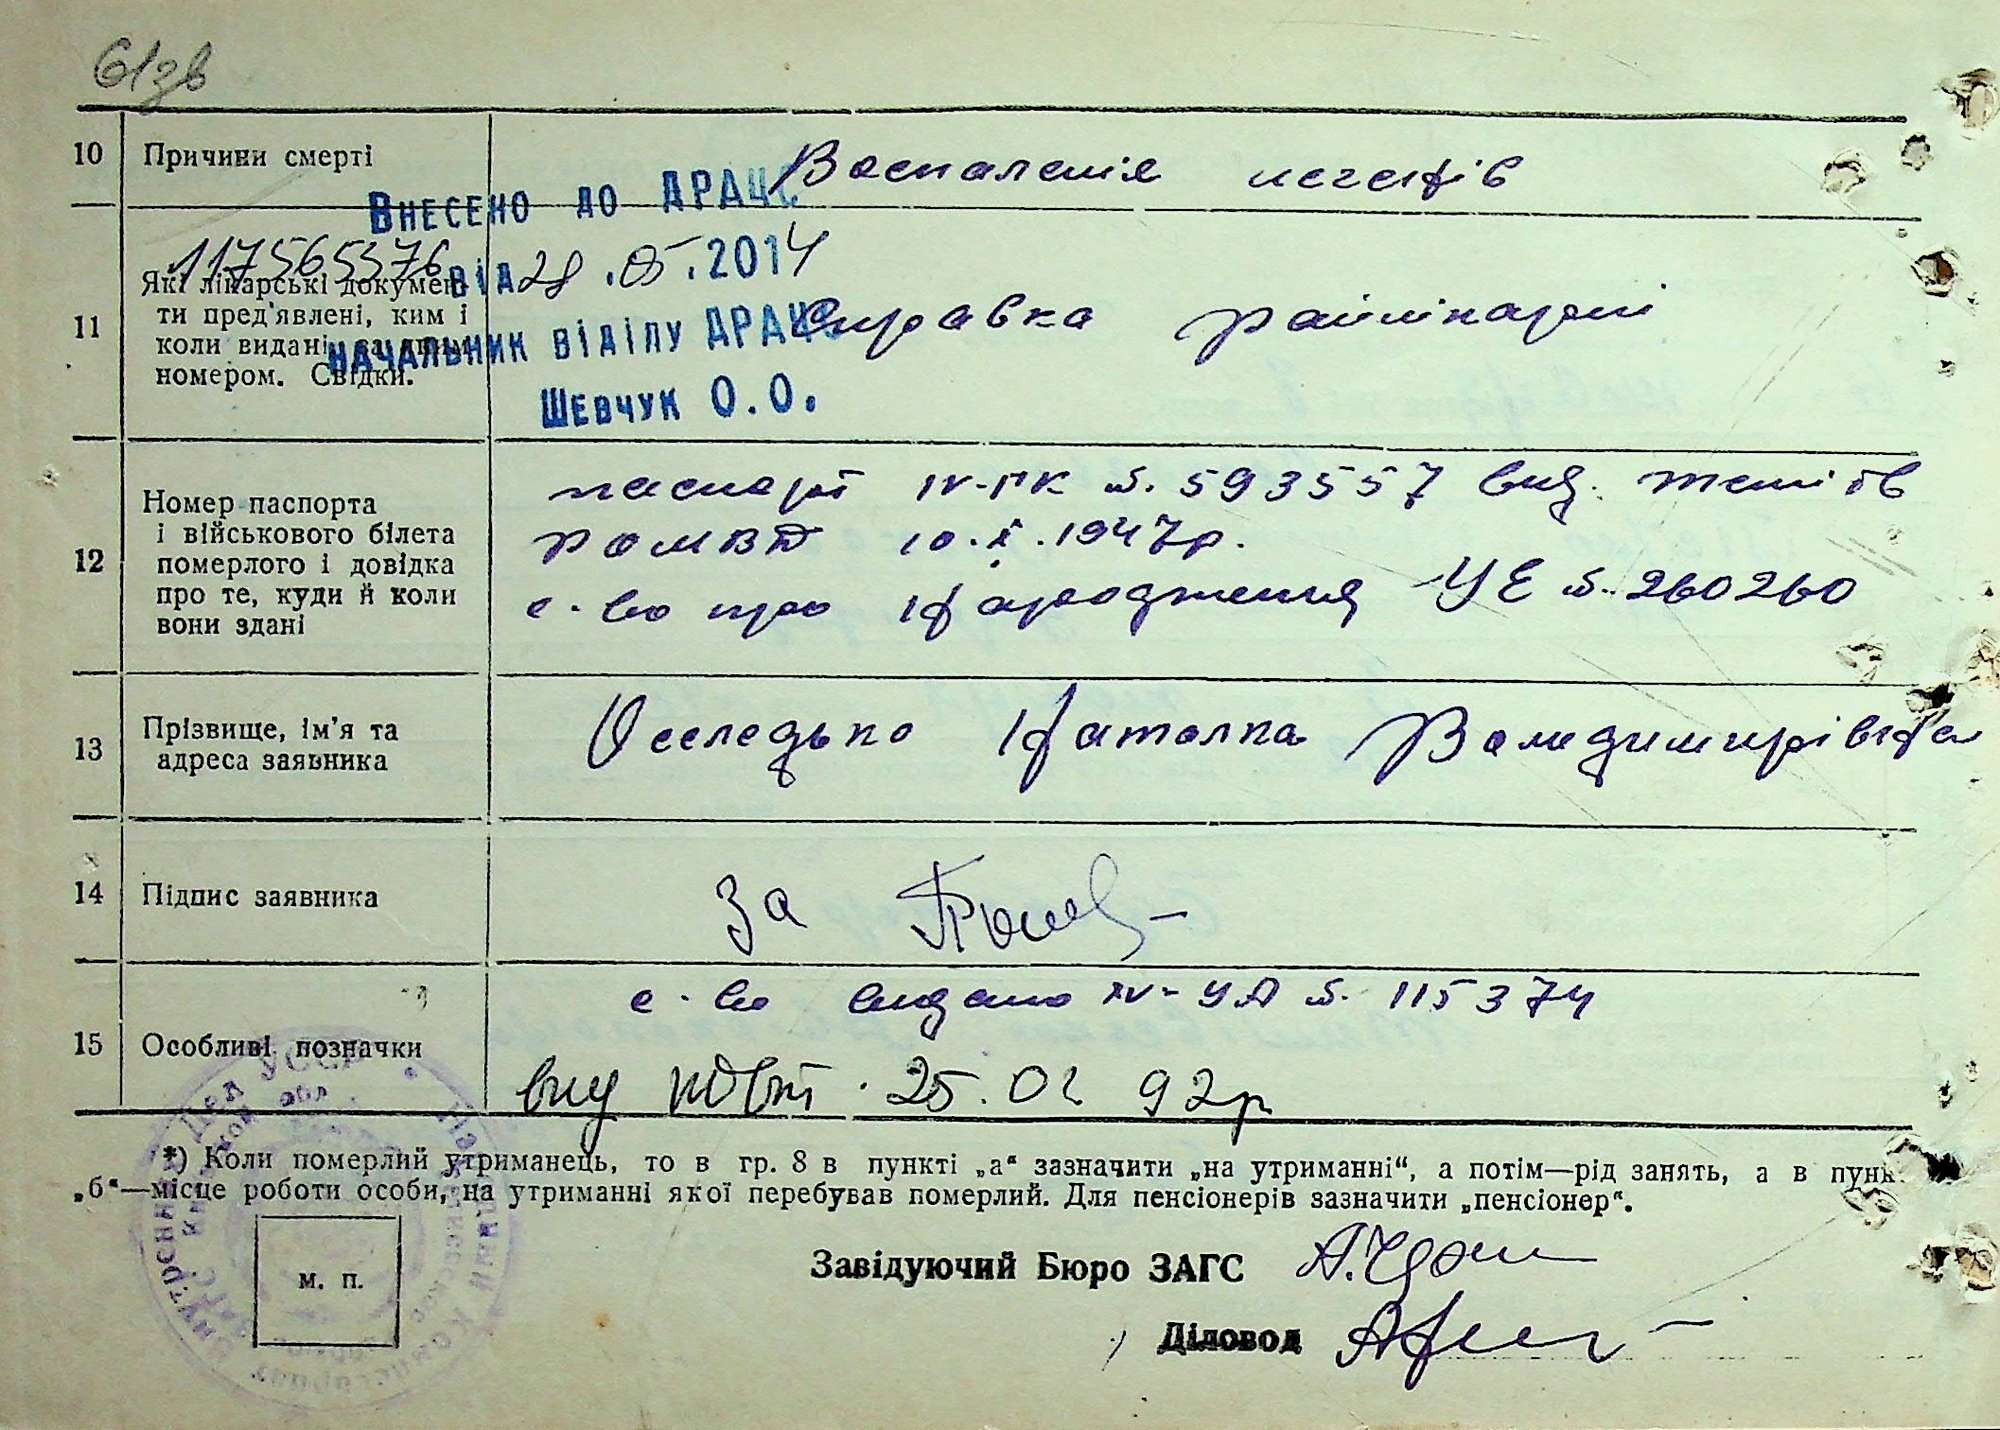 61зв
10 Причини смерті
Воспаленія легенів
Внесено до ДРАЦС
117565376
від 28.05.2014
начальник відділу ДРАЦС
Шевчук О.О.
11 Які лікарські докумен-
ти пред'явлені, ким і
коли видані, за яким
номером. Свідки.
справка райлікарні
12 Номер паспорта
і військового білета
померлого і довідка
про те, куди й коли
вони здані
паспорт IV-ГК №. 593557 вид.
РОМВД 10.X.1947р.
с-во про народження УЕ №. 260260
13 Прізвище, ім'я та
адреса заявника
Оселедько Наталка Володимирівна
14 Підпис заявника
За
15 Особливі позначки
с-во видано IV-УА №. 115374
вид повт. 25.02 92р
*) Коли померлий утриманець, то в гр. 8 в пункті „а“ зазначити „на утриманні“, а потім—рід занять, а в пунк.
„б“—місце роботи особи, на утриманні якої перебував померлий. Для пенсіонерів зазначити „пенсіонер“.
м. п.
Завідуючий Бюро ЗАГС
Діловод